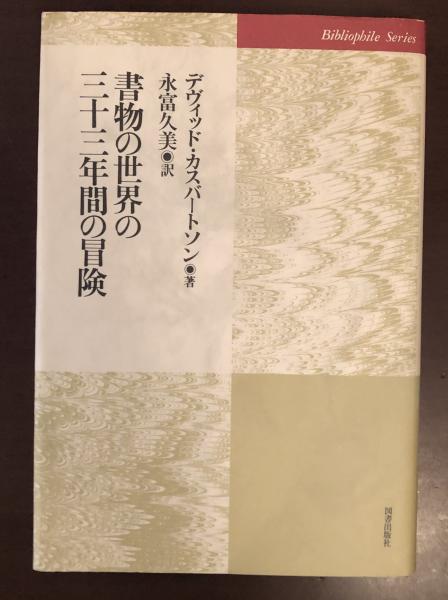 Bibliophile Series
デヴィッド・カスバートソン◉著
永富久美◉訳
書物の世界の
三十三年間の冒険
図書出版社